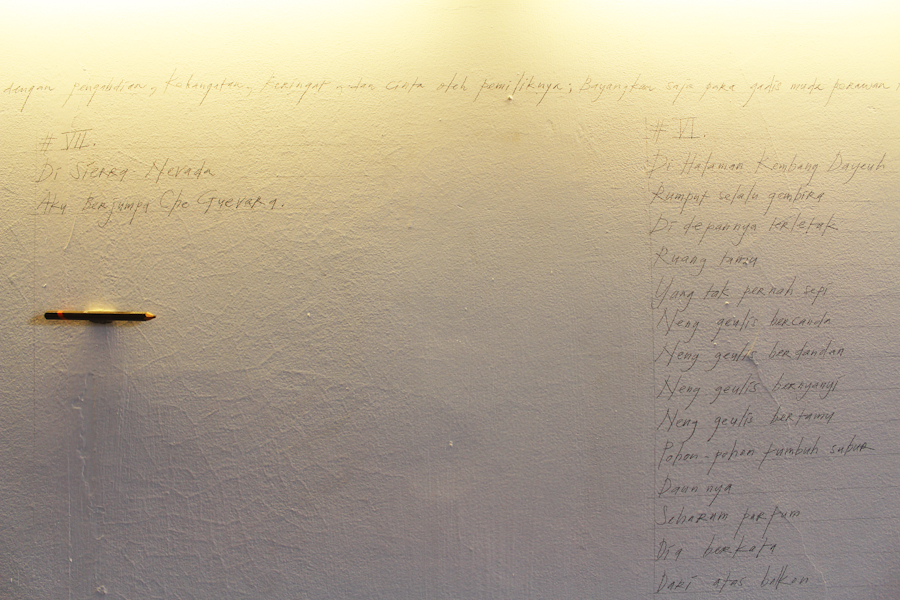 dengan pengabdian, kehangatan, keringat dan cinta oleh pemiliknya; Bayangkan saja para gadis muda perawan
# VII.
Di Sierra Nevada
Aku Berjumpa Che Guevara.
# VI.
Di Halaman Kembang Dayeuh
Rumput selalu gembira
Di depannya terletak
Ruang tamu
Yang tak pernah sepi
Neng geulis bercanda
Neng geulis berdandan
Neng geulis bernyanyi
Neng geulis bertamu
Pohon-pohon tumbuh subur
Daunnya
Seharum parfum
Dia berkata
Dari atas balkon